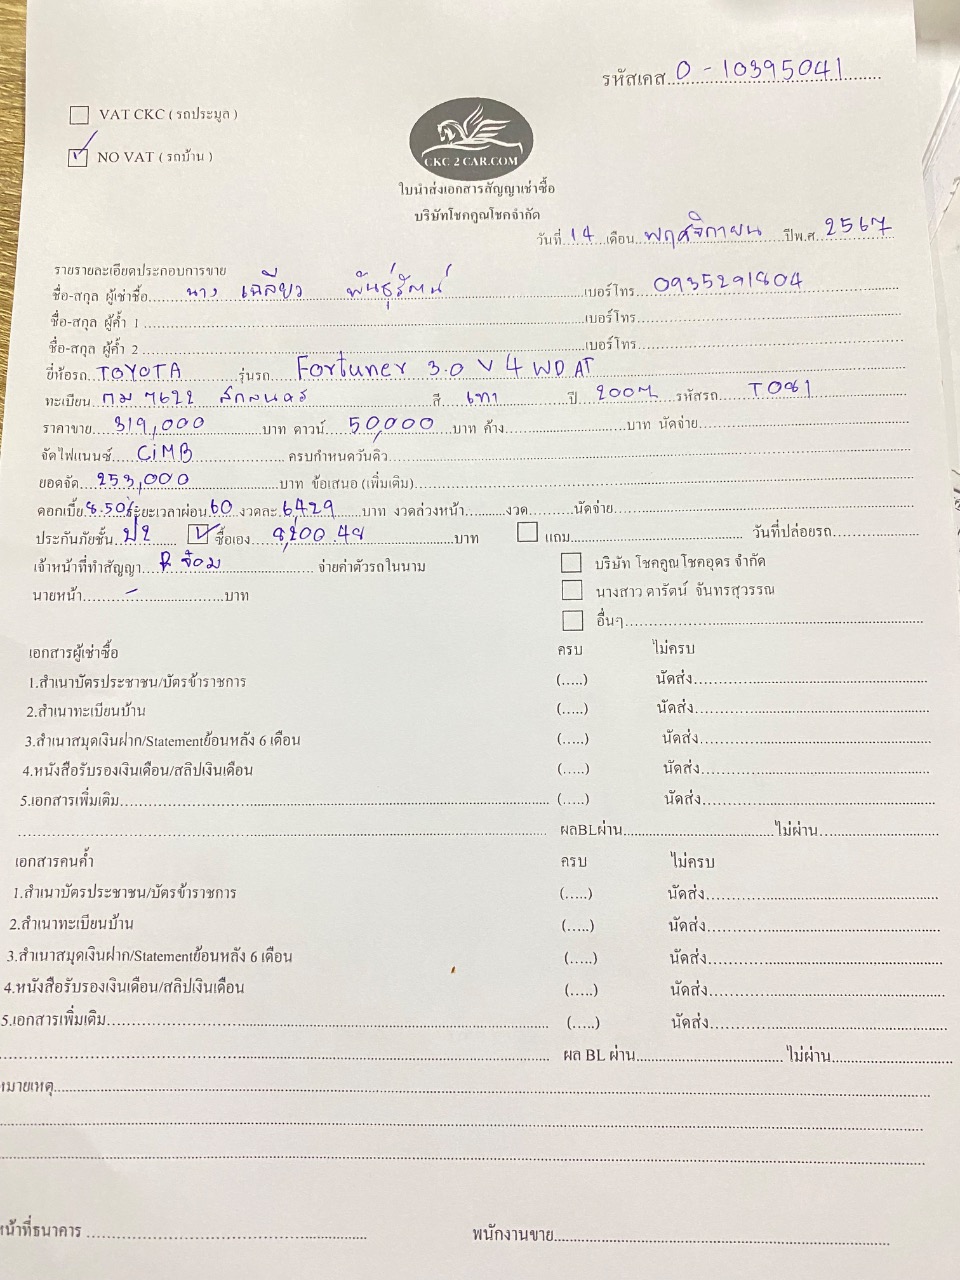 รหัสเคส 0 - 10395041
VAT CKC ( รถประมูล )
NO VAT ( รถบ้าน )
CKC 2 CAR.COM
ใบนำส่งเอกสารสัญญาเช่าซื้อ
บริษัทโชคคูณโชคจำกัด
วันที่ 14 เดือน พฤศจิกายน ปีพ.ศ. 2567
รายรายละเอียดประกอบการขาย
ชื่อ-สกุล ผู้เช่าซื้อ นาง เฉลียว พันธุ์รัตน์ เบอร์โทร 0935291804
ชื่อ-สกุล ผู้ค้ำ 1 เบอร์โทร
ชื่อ-สกุล ผู้ค้ำ 2 เบอร์โทร
ยี่ห้อรถ TOYOTA รุ่นรถ Fortuner 3.0 V 4 WD AT
ทะเบียน กม 7622 สกลนคร สี เทา ปี 2007 รหัสรถ T081
ราคาขาย 319,000 บาท ดาวน์ 50,000 บาท ค้าง บาท นัดจ่าย
จัดไฟแนนซ์ CiMB ครบกำหนดวันคิว
ยอดจัด 253,000 บาท ข้อเสนอ (เพิ่มเติม)
ดอกเบี้ย 8.50% ระยะเวลาผ่อน 60 งวดละ 6429 บาท งวดล่วงหน้า งวด นัดจ่าย
ประกันภัยชั้น ป2 ซื้อเอง 8,200.48 บาท แถม วันที่ปล่อยรถ
เจ้าหน้าที่ทำสัญญา จ๋อม จ่ายค่าตัวรถในนาม บริษัท โชคคูณโชคอุดร จำกัด
นายหน้า - บาท นางสาว ดารัตน์ จันทรสุวรรณ
อื่นๆ
เอกสารผู้เช่าซื้อ ครบ ไม่ครบ
1.สำเนาบัตรประชาชน/บัตรข้าราชการ (.....) นัดส่ง
2.สำเนาทะเบียนบ้าน (.....) นัดส่ง
3.สำเนาสมุดเงินฝาก/Statementย้อนหลัง 6 เดือน (.....) นัดส่ง
4.หนังสือรับรองเงินเดือน/สลิปเงินเดือน (.....) นัดส่ง
5.เอกสารเพิ่มเติม (.....) นัดส่ง
ผลBLผ่าน ไม่ผ่าน
เอกสารคนค้ำ ครบ ไม่ครบ
1.สำเนาบัตรประชาชน/บัตรข้าราชการ (.....) นัดส่ง
2.สำเนาทะเบียนบ้าน (.....) นัดส่ง
3.สำเนาสมุดเงินฝาก/Statementย้อนหลัง 6 เดือน (.....) นัดส่ง
4.หนังสือรับรองเงินเดือน/สลิปเงินเดือน (.....) นัดส่ง
5.เอกสารเพิ่มเติม (.....) นัดส่ง
ผล BL ผ่าน ไม่ผ่าน
หมายเหตุ
หน้าที่ธนาคาร พนักงานขาย